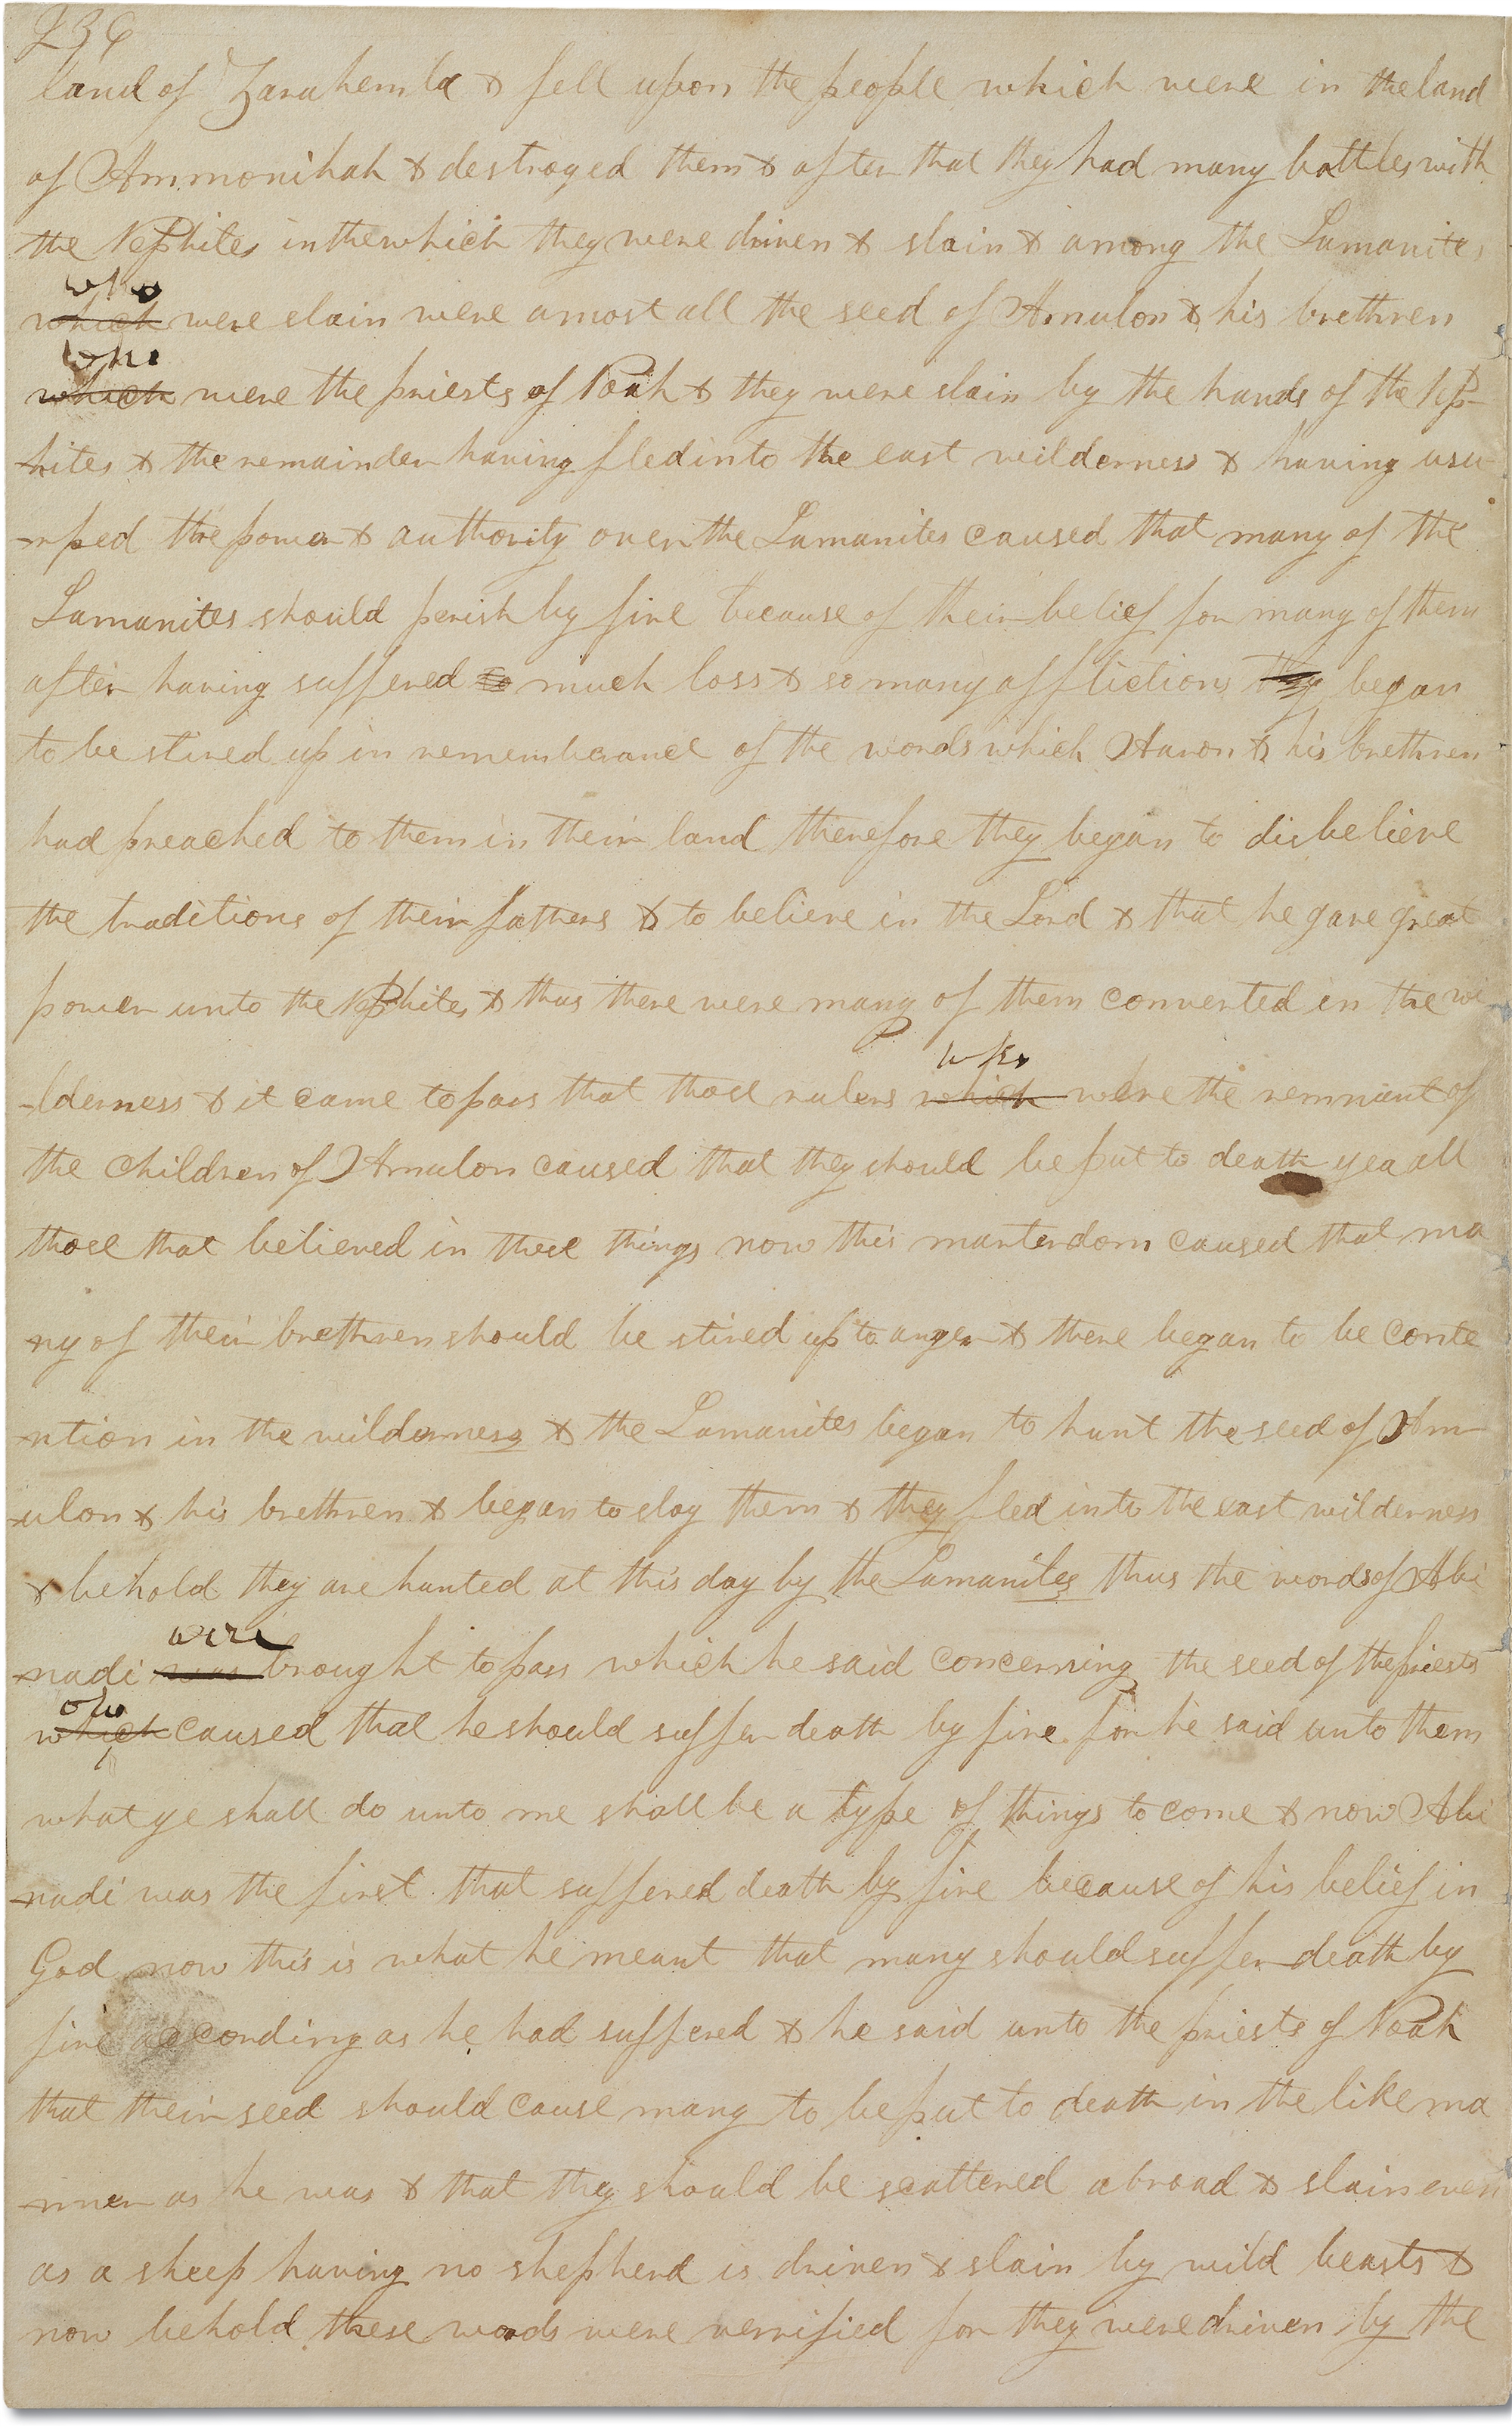 236
land of Zarahemla & fell upon the people which were in the land
of Ammonihah & destroyed them & after that they had many battles with
the Nephites in the which they were driven & slain & among the Lamanites
who
which were slain were amost all the seed of Amulon & his brethren
who
which were the priests of Noah & they were slain by the hands of the Nep-
hites & the remainder having fled into the east wilderness & having usu
-rped the power & authority over the Lamanites caused that many of the
Lamanites should perish by fire because of their belief for many of them
after having suffered so much loss & so many afflictions they began
to be stired up in rememberance of the words which Aaron & his brethren
had preached to them in their land therefore they began to disbelieve
the traditions of their fathers & to believe in the Lord & that he gave great
power unto the Nephites & thus there were many of them converted in the wi
who
-lderness & it came to pass that those rulers which were the remnant of
the children of Amulon caused that they should be put to death yea all
those that believed in these things now this marterdom caused that ma
-ny of their brethren should be stired up to anger & there began to be conte
-ntion in the wilderness & the Lamanites began to hunt the seed of Am-
-ulon & his brethren & began to slay them & they fled into the east wilderness
& behold they are hunted at this day by the Lamanites thus the words of Abi
were
-nadi was brought to pass which he said concerning the seed of the priests
who
which caused that he should suffer death by fire for he said unto them
what ye shall do unto me shall be a type of things to come & now Abi
-nadi was the first that suffered death by fire because of his belief in
God now this is what he meant that many should suffer death by
fire according as he had suffered & he said unto the priests of Noah
that their seed should cause many to be put to death in the like ma
-nner as he was & that they should be scattered abroad & slain even
as a sheep having no shepherd is driven & slain by wild beasts &
now behold these words were verrified for they were driven by the